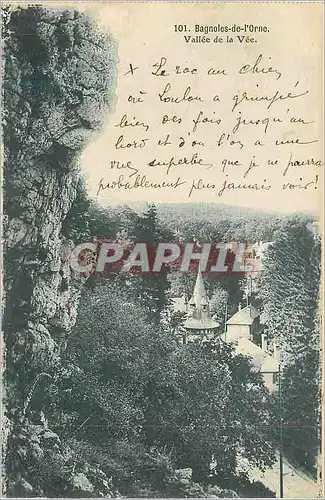 101. Bagnoles-de-l'Orne.
Vallée de la Vée.
x Le roc au chien,
où Loulou a grimpé
bien des fois jusqu'au
bord et d'où l'on a une
vue superbe, que je ne pourrai
probablement plus jamais voir!
CPARAMAPHIL